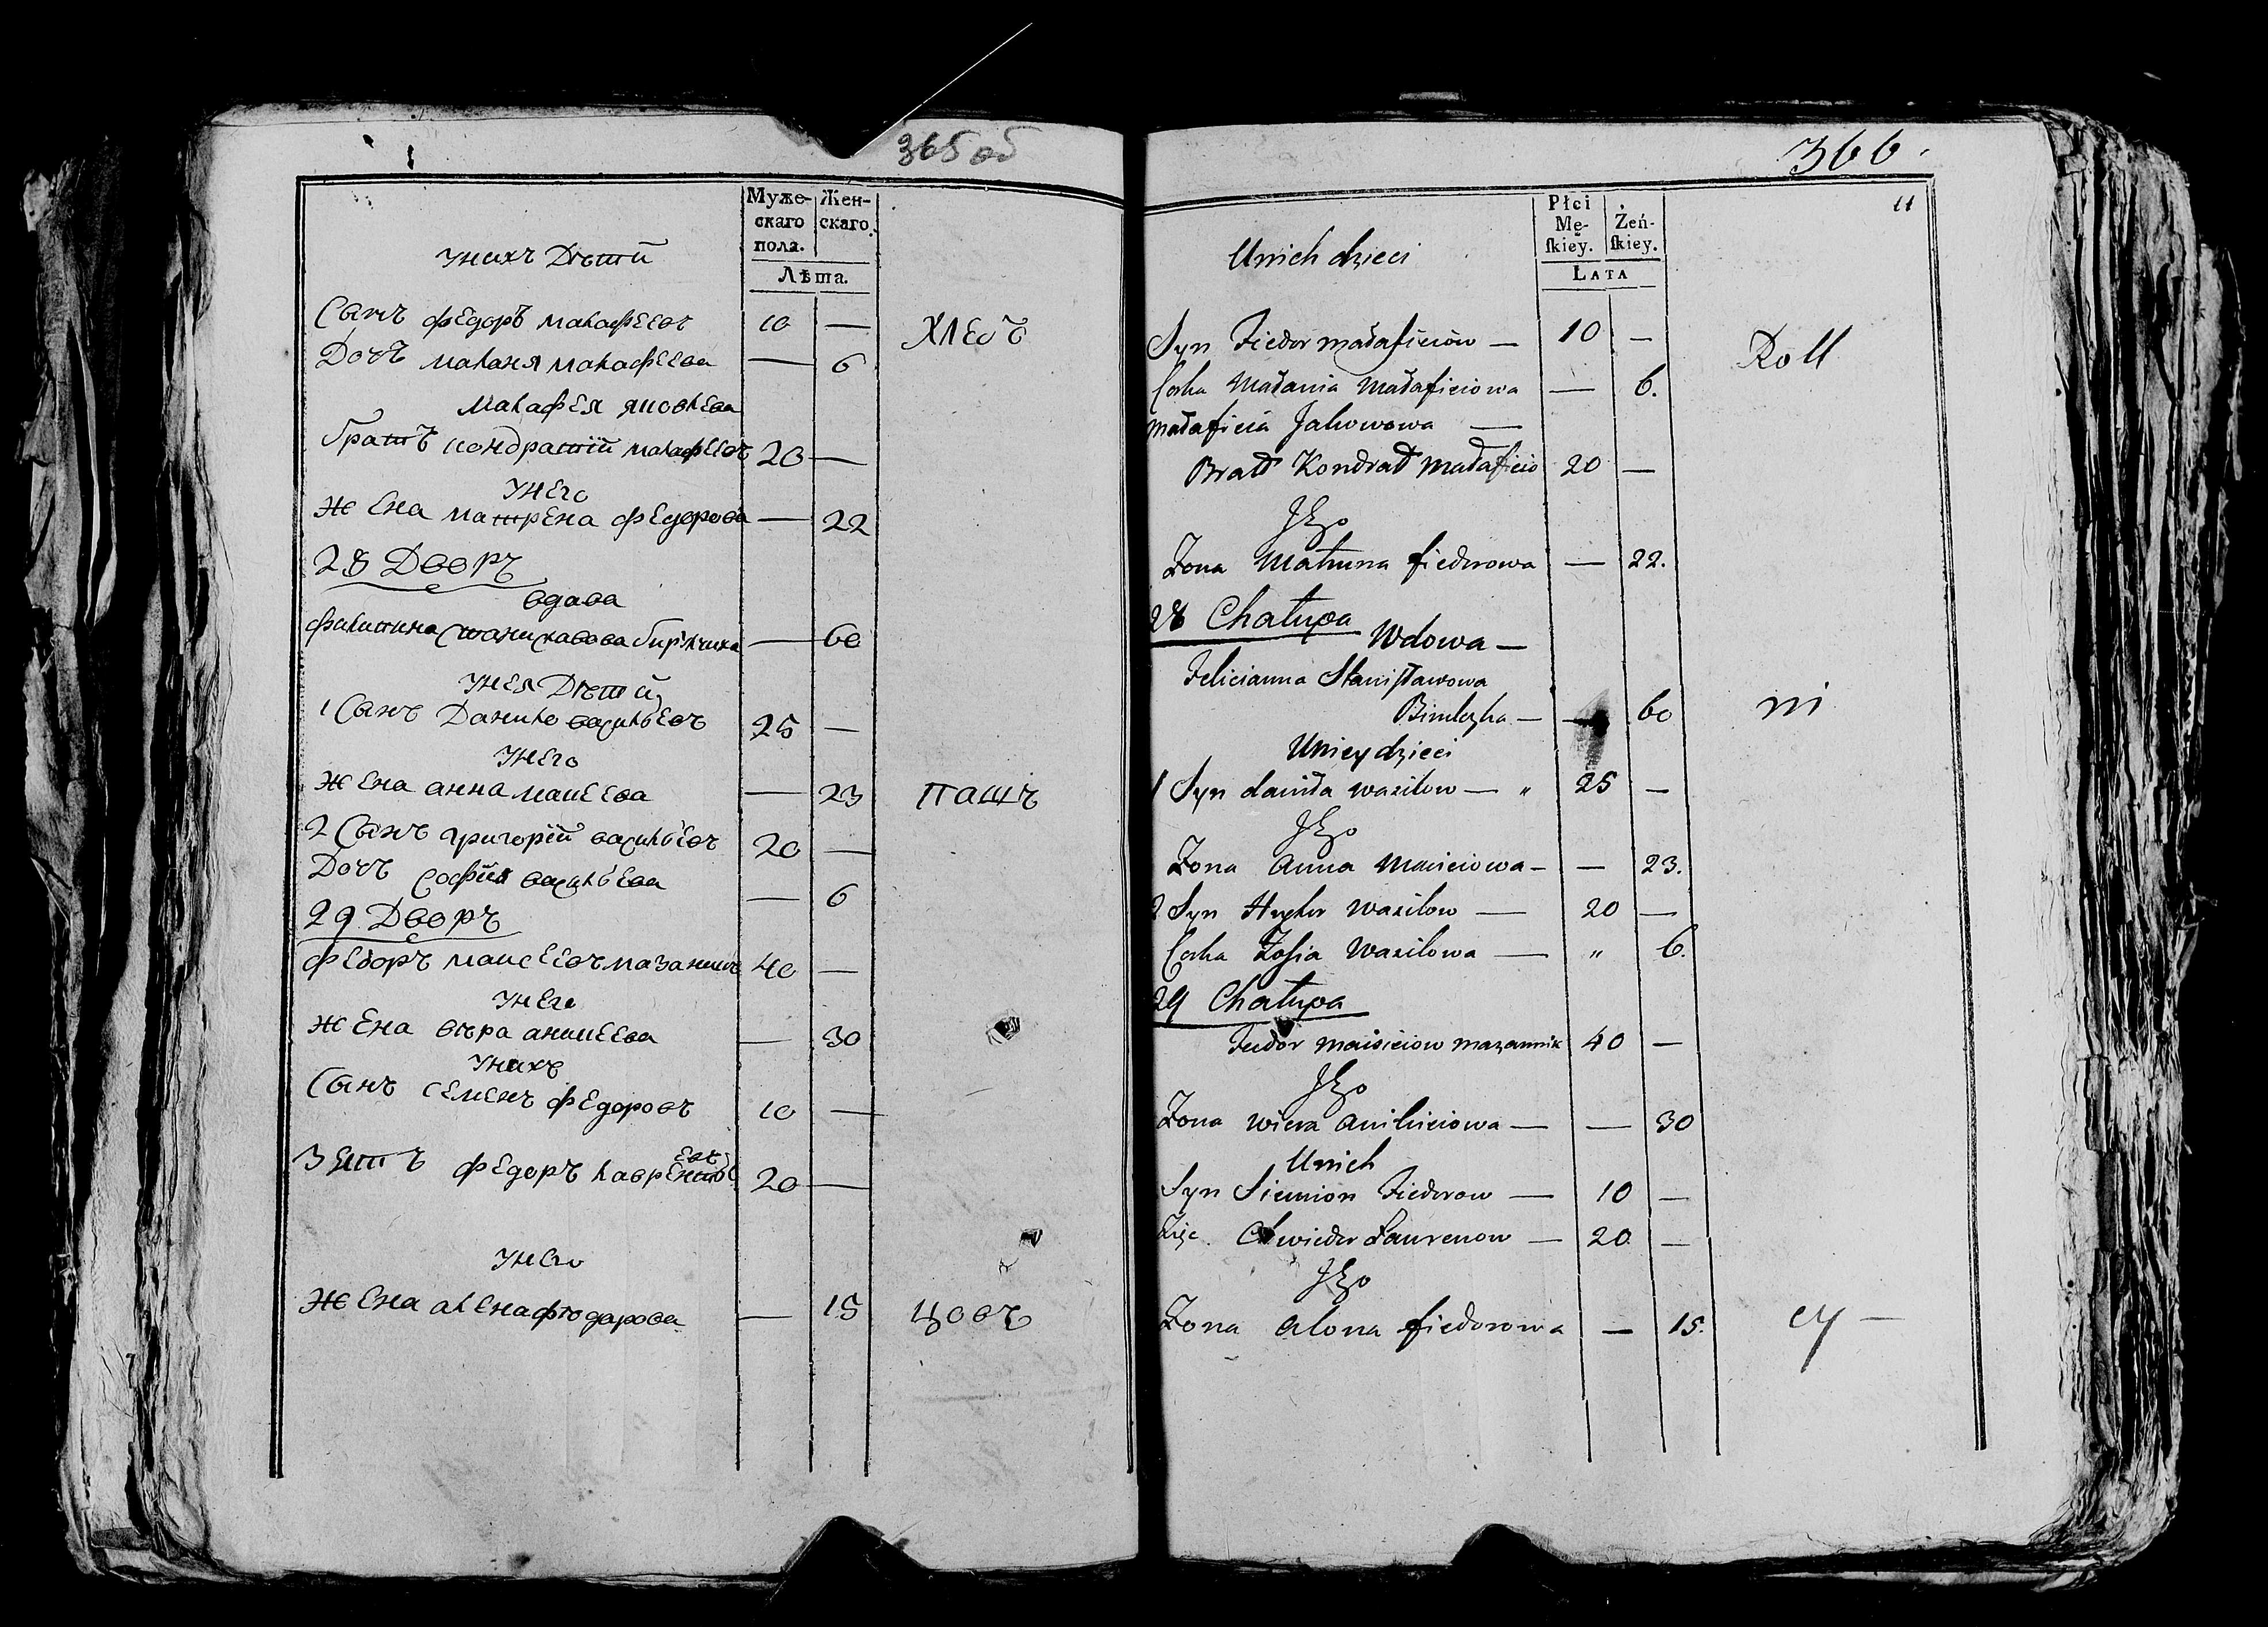 365 об
Муже-
скаго
пола.
Жен-
скаго.
Лѣта.
унихъ Дѣтй
Сынъ федоръ малафеевъ 10 —
хлеб
Дочъ маланя малафеева — 6
малафея яковлева
братъ кондратiй малафеевъ 20 —
унего
жена матрена федорова — 22
28 Дворъ
вдава
фалитина станиславова бирулчиха — 60
унея Дѣтй
1 Сынъ Данило васильевъ 25 —
унего
жена анна мацеева — 23
пашъ
2 Сынъ григорiй васильевъ 20 —
Дочъ софiя васильева — 6
29 Дворъ
федоръ маисеевъ мазаникъ 40 —
унего
жена вѣра аникеева — 30
унихъ
Сынъ семенъ федоровъ 10 —
зять федоръ лаврентьевъ 20 —
унего
жена алена фюдарова — 15
цовъ
366.
11
Płci
Mę-
ſkiey.
Żeń-
ſkiey.
LATA
Unich dzieci
Syn Fiedor małafieiow — 10 —
Roll
Corka Małania Małafieiowa — 6.
małafieia Jakowowa —
Bratt Kondrat małafieio 20 —
Jego
Zona Matruna fiedorowa — 22.
28 Chałupa
Wdowa —
Felicianna Stanisławowa
Birulczka — — 60
ni
Uniey dzieci
1 Syn daniła wasilow — „ 25 —
Jego
Zona Anna Macieiowa — — 23.
2 Syn Hryhor Wasilow — 20 —
Corka Zofia Wasilowa — „ 6.
29 Chałupa
Fiedor maisieiow mazannik 40 —
Jego
Zona Wiera Anikieiowa — — 30
Unich
Syn Siemion Fiedorow — 10 —
Zięc Chwiedor Laurenow — 20 —
Jego
Zona Alona fiedorowa — 15.
cy —